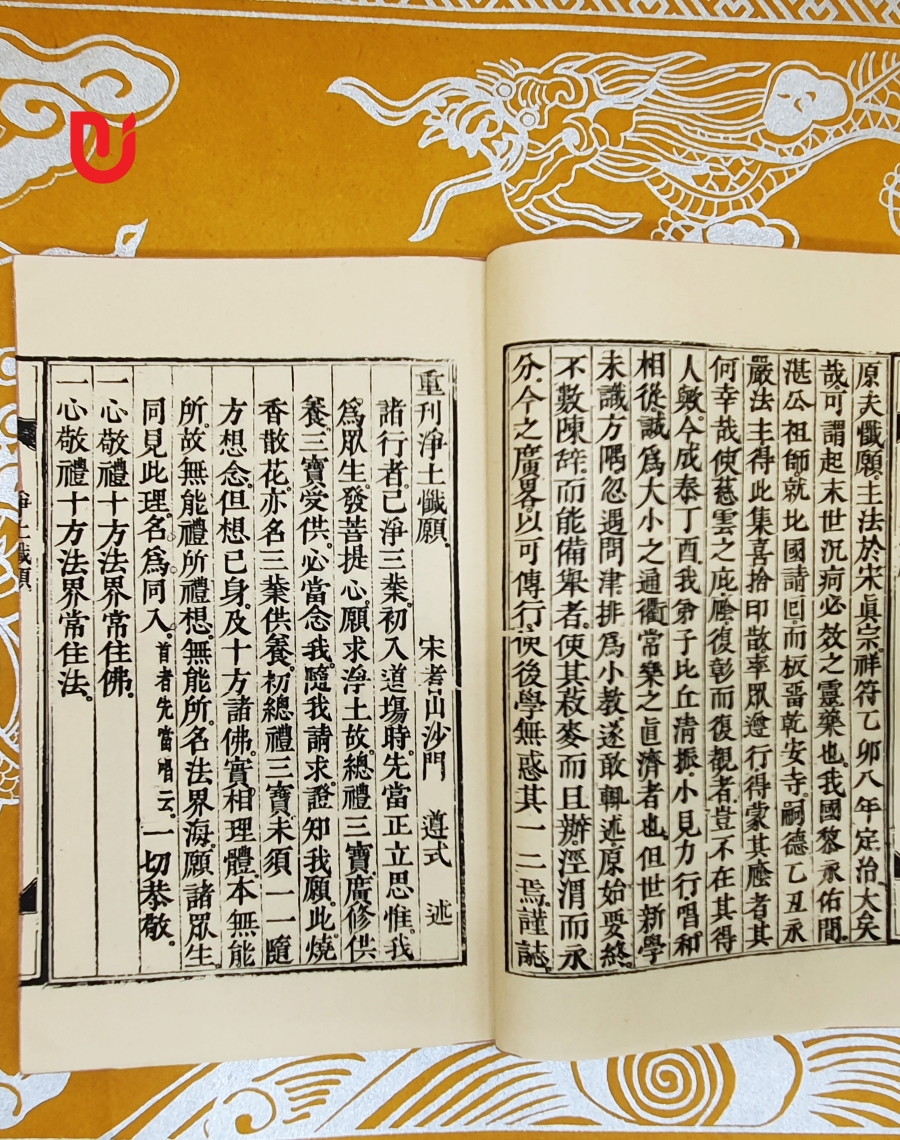 原夫懺願主法於宋眞宗祥符乙卯八年定治大矣
哉可謂起末世沉疴必效之靈藥也我國黎永佑間
湛公祖師就北國請囘而板畱乾安寺嗣德乙丑永
嚴法主得此集喜捨印散率眾遵行得蒙其庥者其
何幸哉使慈雲之庇庥復彰而復觀者豈不在其得
人歟今成泰丁酉我弟子比丘清振小見力行唱和
相從誠爲大小之通衢常樂之眞濟者也但世新學
未識方隅忽遇問津排爲小教遂敢輒述原始要終
不數陳辞而能備舉者使其菽麥而且辦涇渭而永
分今之廣畧以可傳行使後學無惑其一二焉謹誌
重刊淨土懺願 宋耆山沙門 遵式 述
諸行者已淨三業初入道場時先當正立思惟我
爲眾生發菩提心願求淨土故總禮三寶廣修供
養三寶受供心當念我隨我請求證知我願此燒
香散花亦名三業供養初總禮三寶未須一一隨
方想念但想己身及十方諸佛實相理體本無能
所故無能禮所禮想無能所名法界海願諸眾生
同見此理名爲同入首者先當唱云一切恭敬
一心敬禮十方法界常住佛
一心敬禮十方法界常住法
淨土懺願